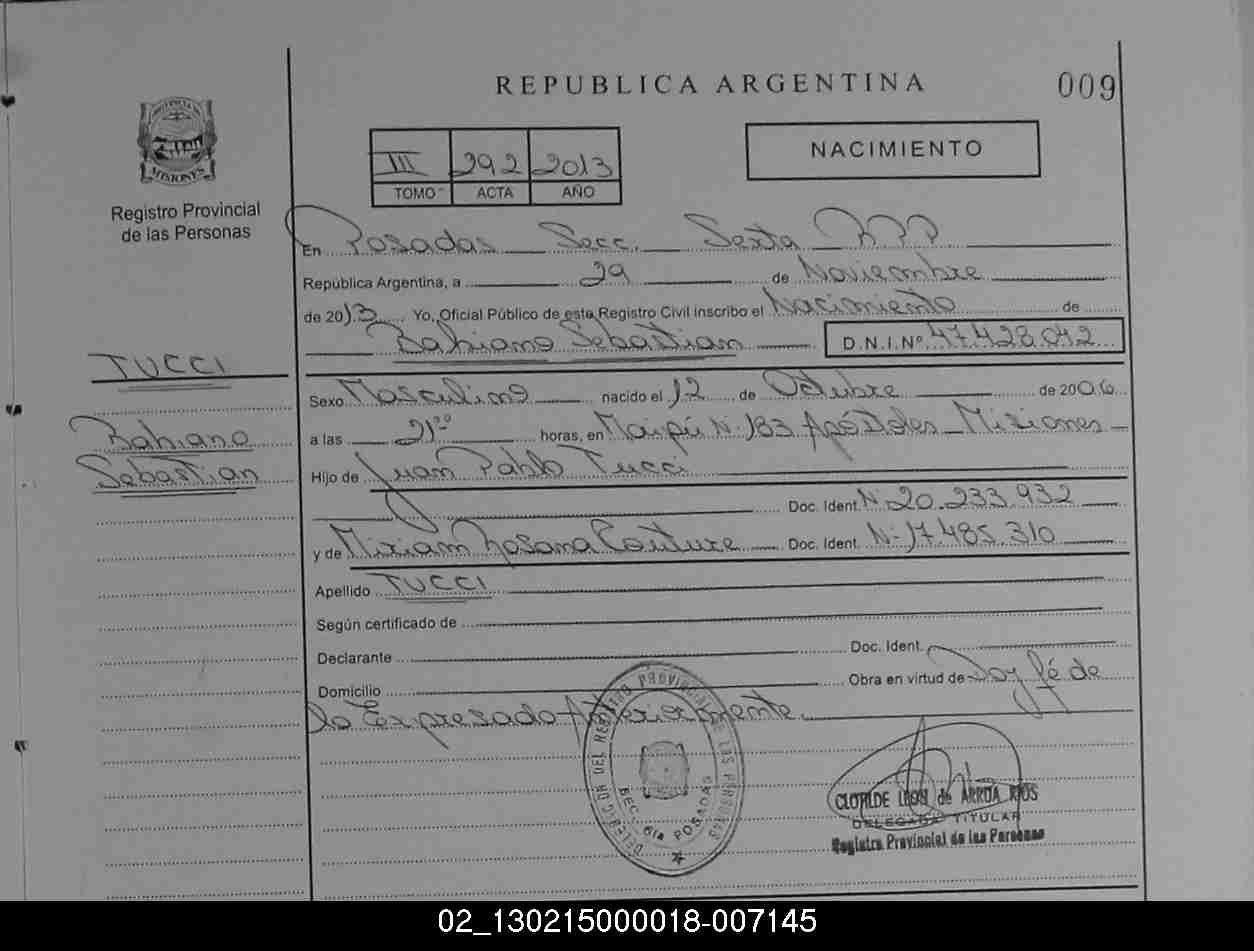 REPUBLICA ARGENTINA
009
PROVINCIA DE
MISIONES
Registro Provincial
de las Personas
III 292 2013
TOMO ACTA AÑO
NACIMIENTO
En Posadas Secc. Sexta RPP
República Argentina, a 29 de Noviembre
de 2013 Yo, Oficial Público de este Registro Civil inscribo el Nacimiento de
Bahiano Sebastian D.N.I.Nº 47.428.042
TUCCI
Bahiano
Sebastian
Sexo Masculino nacido el 12 de Octubre de 2006
a las 21ºº horas, en Maipú Nº 183 Apóstoles Misiones
Hijo de Juan Pablo Tucci
Doc. Ident. Nº 20.233.932
y de Miriam Rosana Couture Doc. Ident. Nº 17.485.310
Apellido TUCCI
Según certificado de
Declarante Doc. Ident.
Domicilio Obra en virtud de Doy fé de
lo Expresado Anteriormente
DELEGACION DEL REGISTRO PROVINCIAL DE LAS PERSONAS
SECC. 6ta POSADAS
de ARRUA RIOS
DELEGADA TITULAR
Registro Provincial de las Personas
02_130215000018-007145